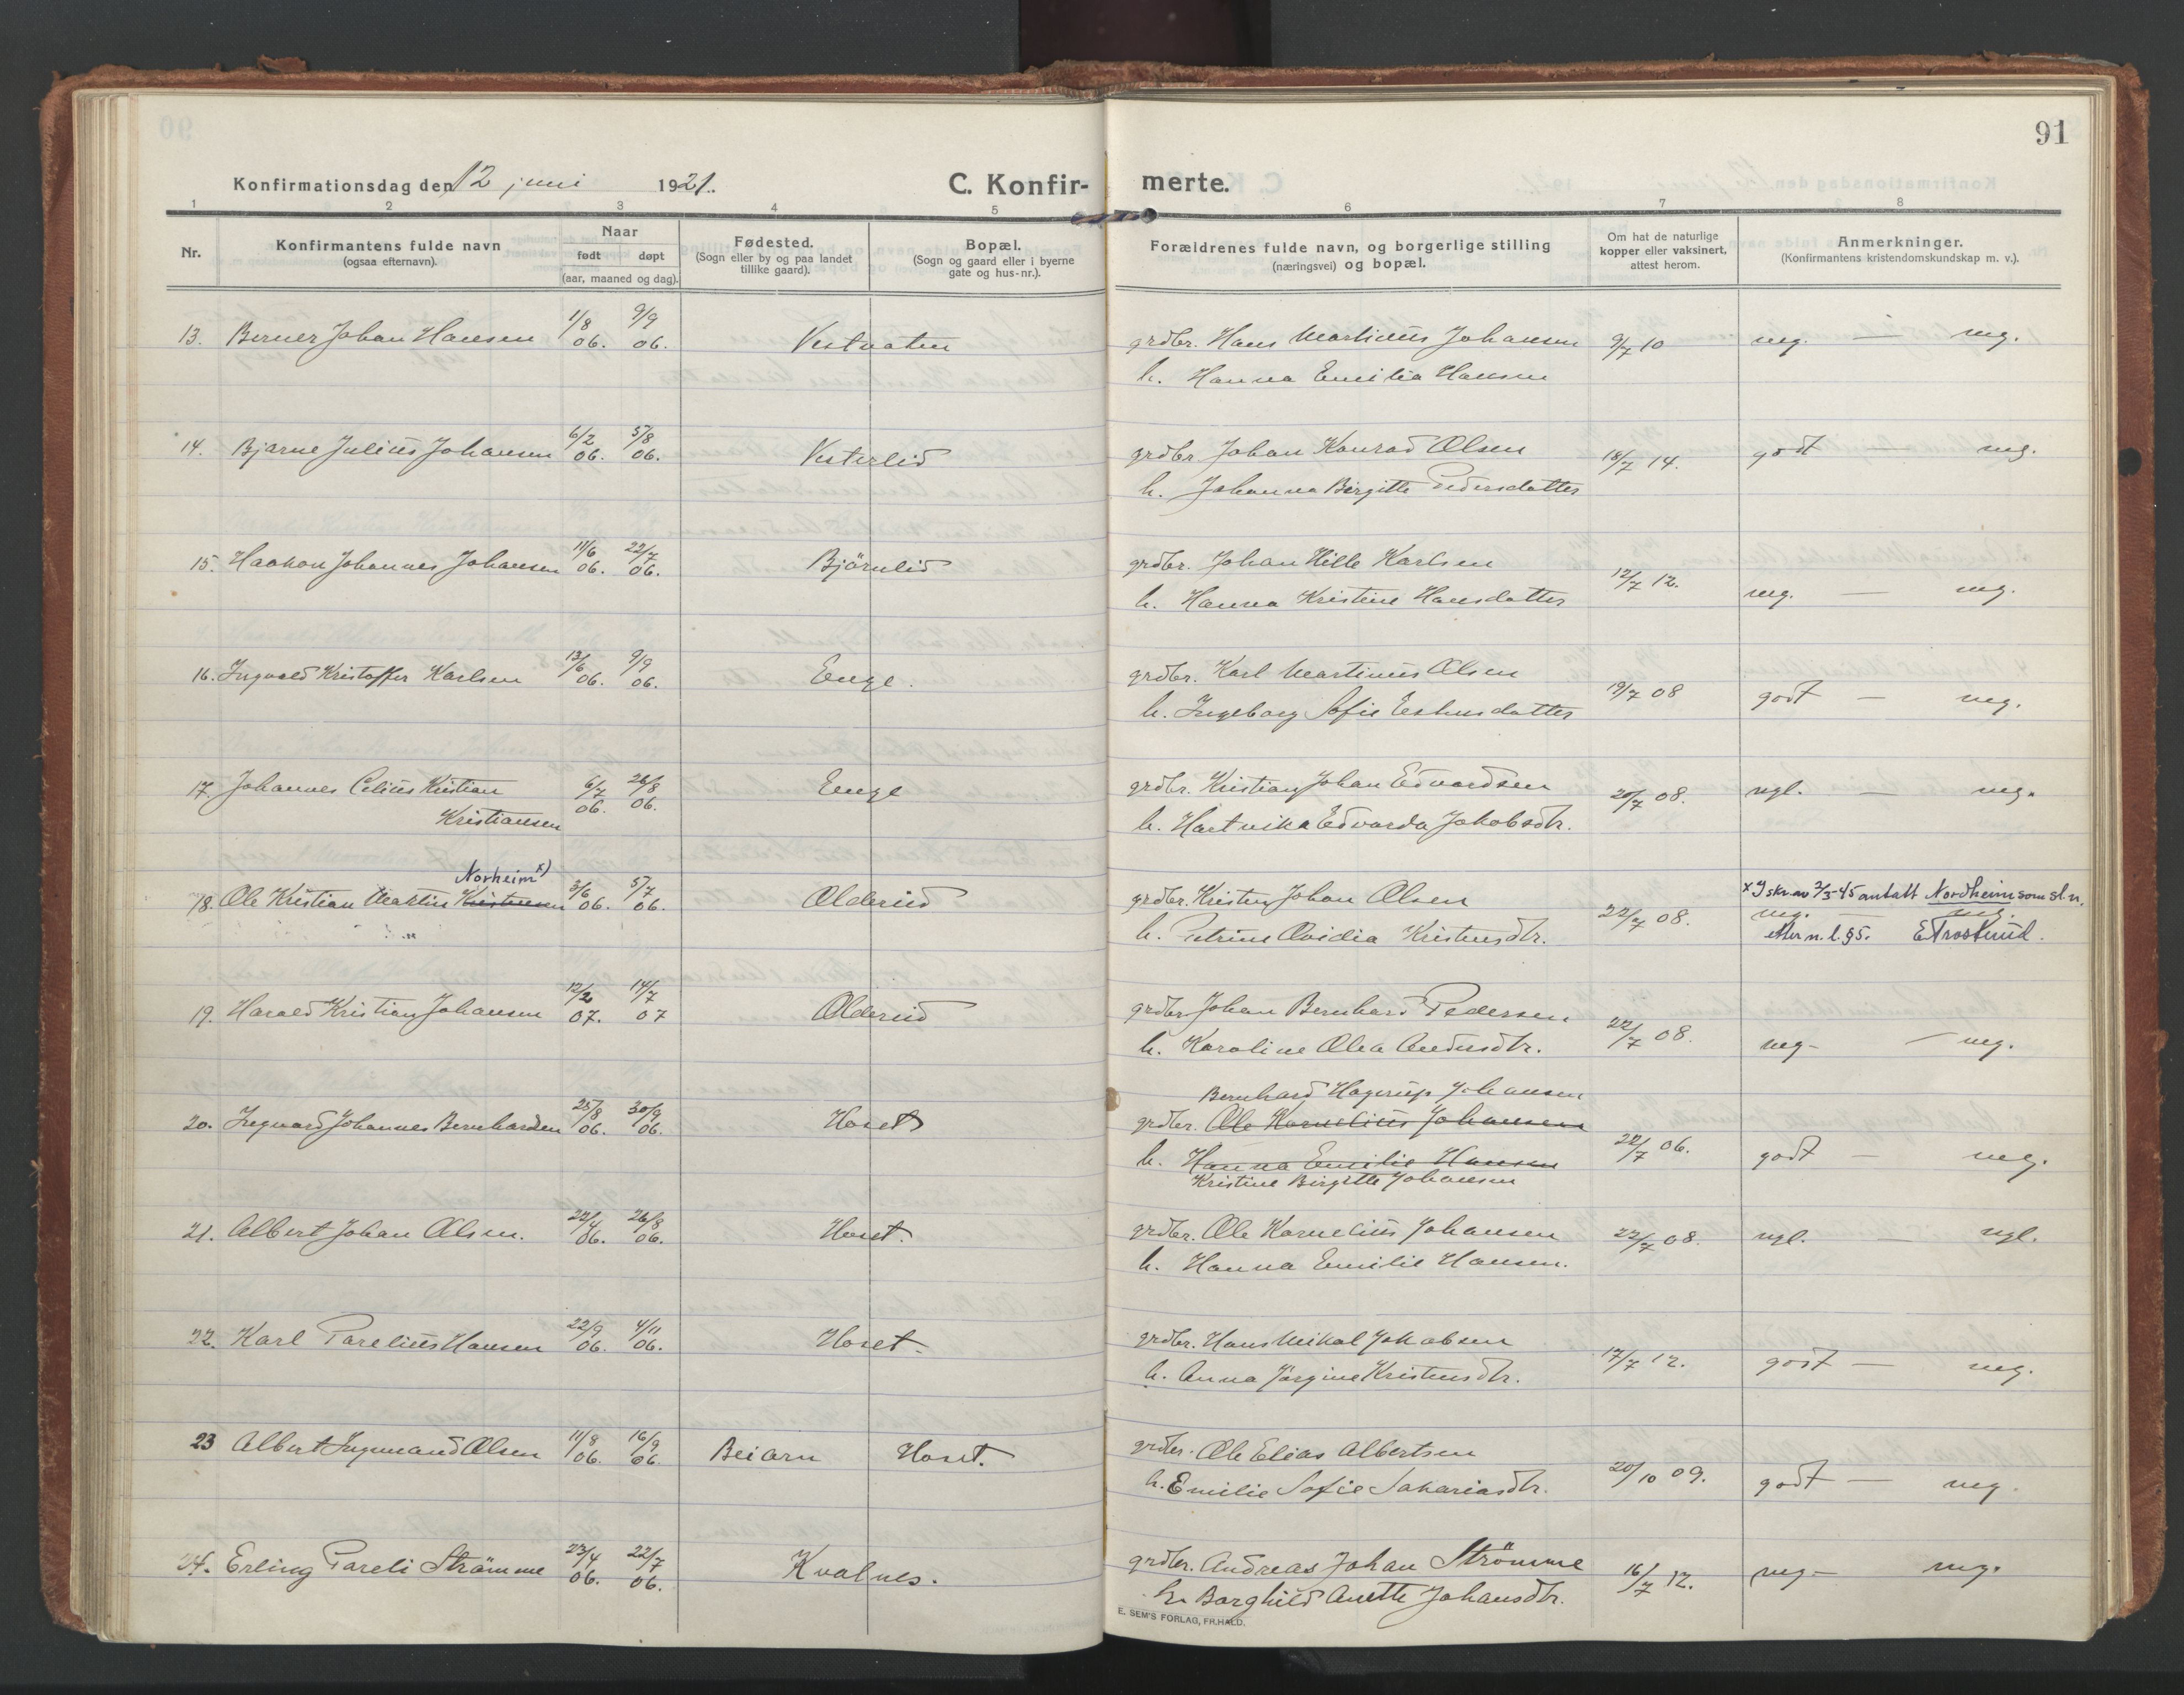 91
Konfirmationsdag den 12 juni 1921.
C. Konfir- merte.
1 2 3 4 5 6 7 8
Nr.
Konfirmantens fulde navn
(ogsaa efternavn).
Naar
født døpt
(aar, maaned og dag).
Fødested.
(Sogn eller by og paa landet
tillike gaard).
Bopæl.
(Sogn og gaard eller i byerne
gate og hus-nr.).
Forældrenes fulde navn, og borgerlige stilling
(næringsvei) og bopæl.
Om hat de naturlige
kopper eller vaksinert,
attest herom.
Anmerkninger.
(Konfirmantens kristendomskundskap m. v.).
13. Berner Johan Hansen 1/8 06. 9/9 06. Vestvaten grdbr. Hans Martinus Johansen 9/7 10 mg. — mg.
h. Hanna Emilia Hansen
14. Bjarne Julius Johansen 6/2 06. 5/8 06. Vesterlid grdbr Johan Konrad Olsen 18/7 14. godt — mg.
h. Johanna Birgitte Pedersdatter
15. Haakon Johannes Johansen 11/6 06. 22/7 06. Björnlid grdbr. Johan Hille Karlsen 12/7 12. mg. — mg.
h. Hanna Kristine Hansdatter
16. Ingvald Kristoffer Karlsen 13/6 06. 9/9 06. Enge. grdbr. Karl Martinus Olsen 19/7 08 godt — mg.
h. Ingeborg Sofie Esbensdatter
17. Johannes Celius Kristian 6/7 06. 26/8 06. Enge grdbr. Kristian Johan Edvardsen 20/7 08. ngl. — mg.
Kristiansen h. Hartvika Edvarda Jakobsdtr.
Norheim x)
18. Ole Kristian Martin Kristensen 3/6 06. 5/7 06. Olderüd grdbr. Kristen Johan Olsen 22/7 08. x I skr. av 2/3-45 antatt Nordheim som sl.n.
mg. — mg.
h. Petrine Ovidia Kristensdtr. etter n. l. §5. E Trostrud.
19. Harald Kristian Johansen 12/2 07. 14/7 07 Olderüd grdbr Johan Bernhard Pedersen 22/7 08. mg- — mg.
h. Karoline Olea Andersdtr.
Bernhard Hagerup Johansen
20. Ingvard Johannes Bernhardsen 25/8 06. 30/9 06. Hoset grdbr. Ole Kornelius Johansen 22/7 06. godt — mg.
h. Hanna Emilie Hansen
Kristine Birgitte Johansen
21. Albert Johan Olsen. 22/4 06. 26/8 06. Hoset. grdbr. Ole Kornelius Johansen 22/7 08. ngl. — ngl.
h. Hanna Emilie Hansen.
22. Karl Parelius Hansen 22/9 06. 4/11 06. Hoset. grdbr. Hans Mikal Jakobsen 17/7 12. godt — mg.
h. Anna Jörgine Kristensdtr.
23 Albert Ingemand Olsen 11/8 06. 16/9 06. Beiarn Hoset. grdbr. Ole Elias Albertsen 20/10 09. godt — mg.
h. Emilie Sofie Sakariasdtr.
24. Erling Pareli Strömme 23/4 06. 22/7 06. Kvalnes. grdbr. Andreas Johan Strömme 16/7 12. mg — mg.
h. Borghild Anette Johansdtr.
E. SEM'S FORLAG, FR.HALD.